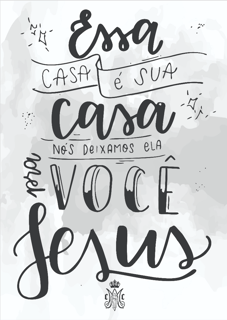 Essa
CASA é SUA
casa
NÓS DEIXAMOS ELA
PRA
VOCÊ
Jesus